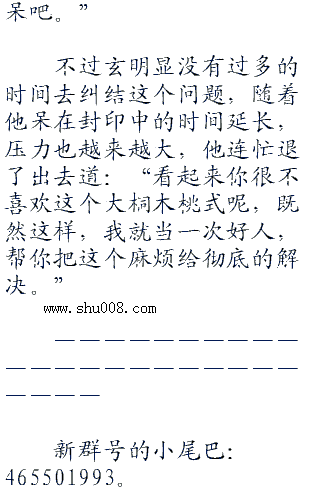 呆吧。”
不过玄明显没有过多的
时间去纠结这个问题，随着
他呆在封印中的时间延长，
压力也越来越大，他连忙退
了出去道：“看起来你很不
喜欢这个大桐木桃式呢，既
然这样，我就当一次好人，
帮你把这个麻烦给彻底的解
决。”
www.shu008.com
－－－－－－－－－－
－－－－－－－－－－－－
－－－－
新群号的小尾巴：
465501993。